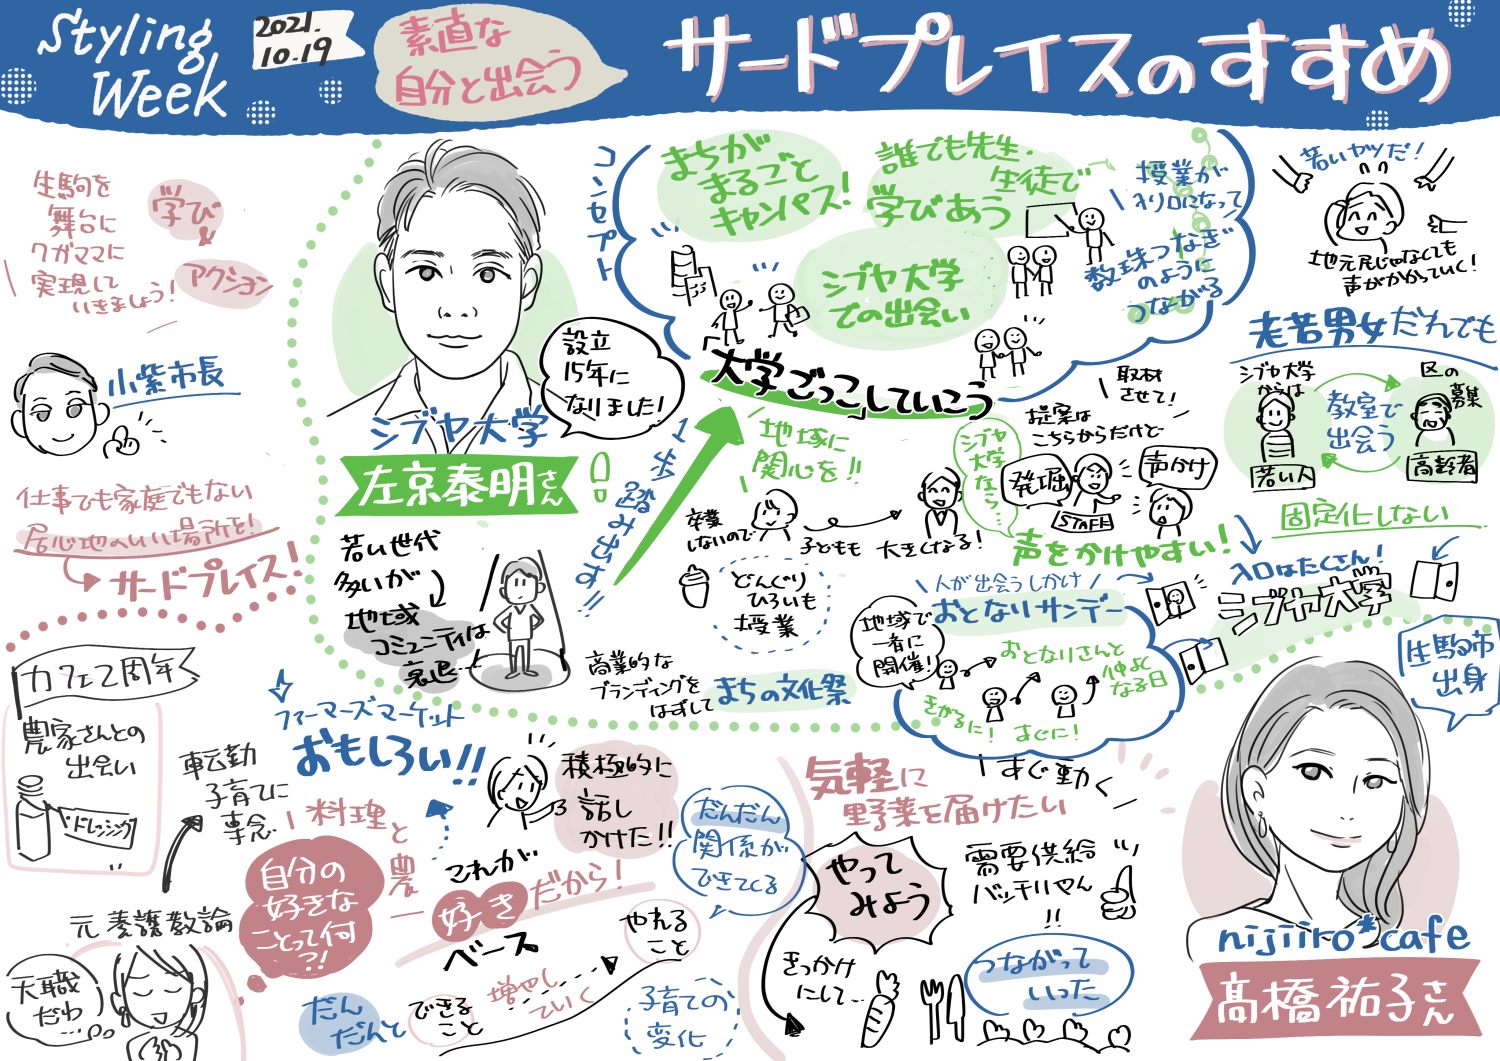 Styling
Week
2021.
10.19
素直な
自分と出会う
サードプレイスのすすめ
生駒を
舞台に
ワガママに
実現して
いきましょう!
学び
&
アクション
小紫市長
仕事でも家庭でもない
居心地のいい場所を!
サードプレイス!
設立
15年に
なりました!
シブヤ大学
左京泰明さん
若い世代
多いが
地域
コミュニティは
衰退…!
1歩
踏み出す!!
コンセプト
まちが
まるごと
キャンパス!
誰でも先生・
生徒で
学びあう
シブヤ大学
での出会い
授業が
入り口になって
数珠つなぎ
のように
つながる
「大学ごっこ」していこう
地域に
関心を!!
卒業
しないので
子どもも
大きくなる!
どんぐり
ひろいも
授業
商業的な
ブランディングを
はずして
まちの文化祭
取材
させて!
提案は
こちらからだけど
シブヤ
大学
なら…
発掘
声かけ
STAFF
声をかけやすい!
人が出会うしかけ
おとなりサンデー
地域で
一斉に
開催!
おとなりさんと
仲よく
なる日
きがるに!
すぐに!
すぐ動く
若いヤツだ!
地元民じゃなくても
声がかかっていく!
老若男女だれでも
シブヤ大学
からは
若い人
教室で
出会う
区の
募集
高齢者
固定化しない
入口はたくさん!
シブヤ大学
生駒市
出身
nijiiro*cafe
髙橋祐子さん
カフェ2周年
農家さんとの
出会い
ドレッシング
転勤
子育てに
専念
元養護教諭
天職
だわ…
ファーマーズマーケット
おもしろい!!
料理と農
自分の
好きな
ことって何
?!
積極的に
話し
かけた!!
これが
好きだから!
ベース
だんだん
関係が
できてくる
だん
だんと
できる
こと
増やし
ていく
やれる
こと
子育ての
変化
気軽に
野菜を届けたい
やって
みよう
きっかけ
にして…
需要供給
バッチリやん
!!
つながって
いった